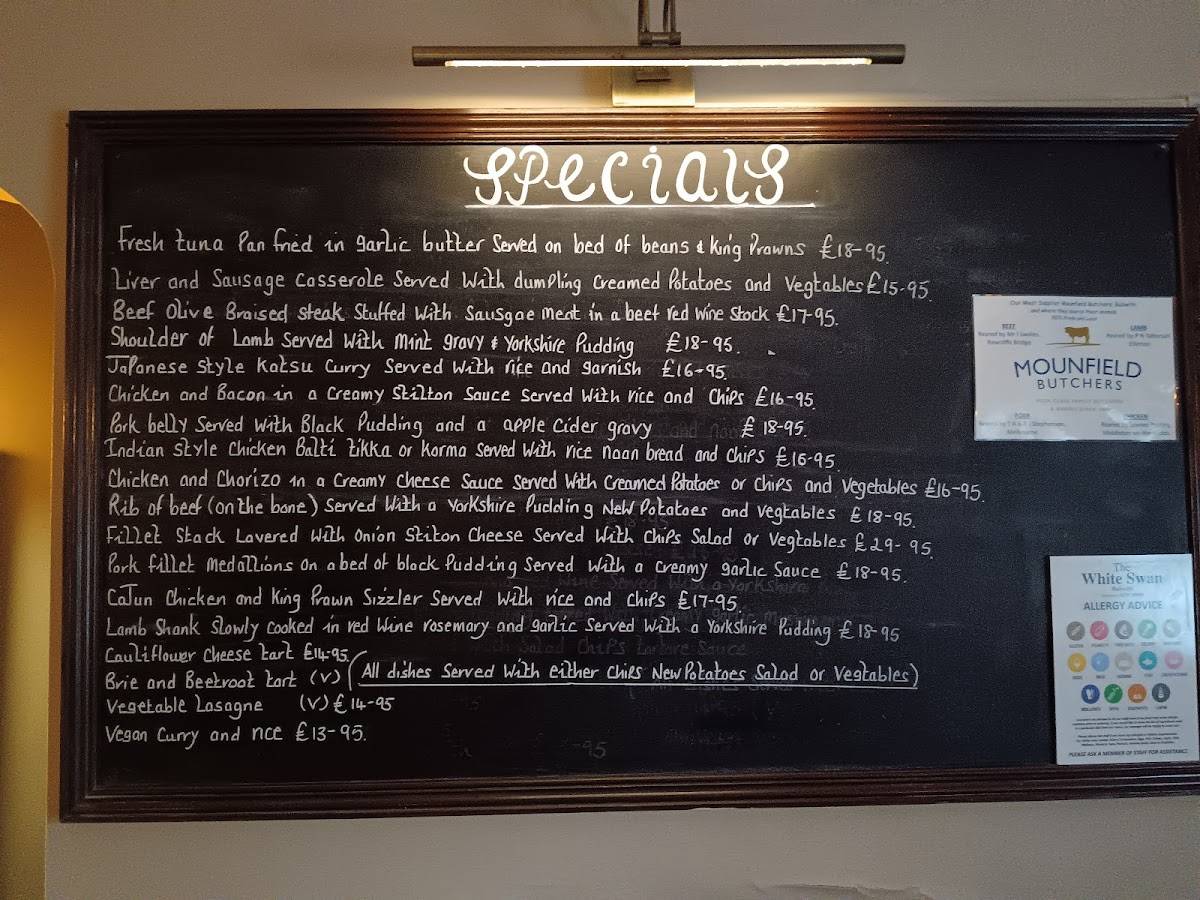 Specials
Fresh tuna Pan fried in garlic butter Served on bed of beans & King Prawns £18-95.
Liver and Sausage Casserole Served With dumpling Creamed Potatoes and Vegtables £15-95.
Beef Olive Braised steak Stuffed With Sausgae meat in a beef red wine Stock £17-95.
Shoulder of Lamb Served With Mint gravy & Yorkshire Pudding £18-95.
Japanese Style Katsu Curry Served With rice and garnish £16-95.
Chicken and Bacon in a Creamy Stilton Sauce Served With rice and Chips £16-95.
Pork belly Served With Black Pudding and a apple Cider gravy £18-95.
Indian Style Chicken Balti tikka or Korma Served With rice naan bread and Chips £16-95.
Chicken and Chorizo in a Creamy Cheese Sauce Served With Creamed Potatoes or Chips and Vegetables £16-95.
Rib of beef (on the bone) Served With a Yorkshire Pudding New Potatoes and Vegtables £18-95.
Fillet Stack Layered With Onion Stilton Cheese Served With Chips Salad or Vegtables £29-95.
Pork fillet Medallions on a bed of black Pudding Served With a Creamy garlic Sauce £18-95.
Cajun Chicken and King Prawn Sizzler Served With rice and Chips £17-95.
Lamb Shank Slowly Cooked in red Wine rosemary and garlic Served With a Yorkshire Pudding £18-95
Cauliflower Cheese tart £14-95.
Brie and Beetroot tart (V) (All dishes Served With either Chips New Potatoes Salad or Vegtables)
Vegetable Lasagne (V) £14-95
Vegan Curry and rice £13-95.
Our Meat Supplier Mounfield Butchers Bubwith
and where they source their animals
BEEF
LAMB
MOUNFIELD
BUTCHERS
The
White Swan
ALLERGY ADVICE
PLEASE ASK A MEMBER OF STAFF FOR ASSISTANCE